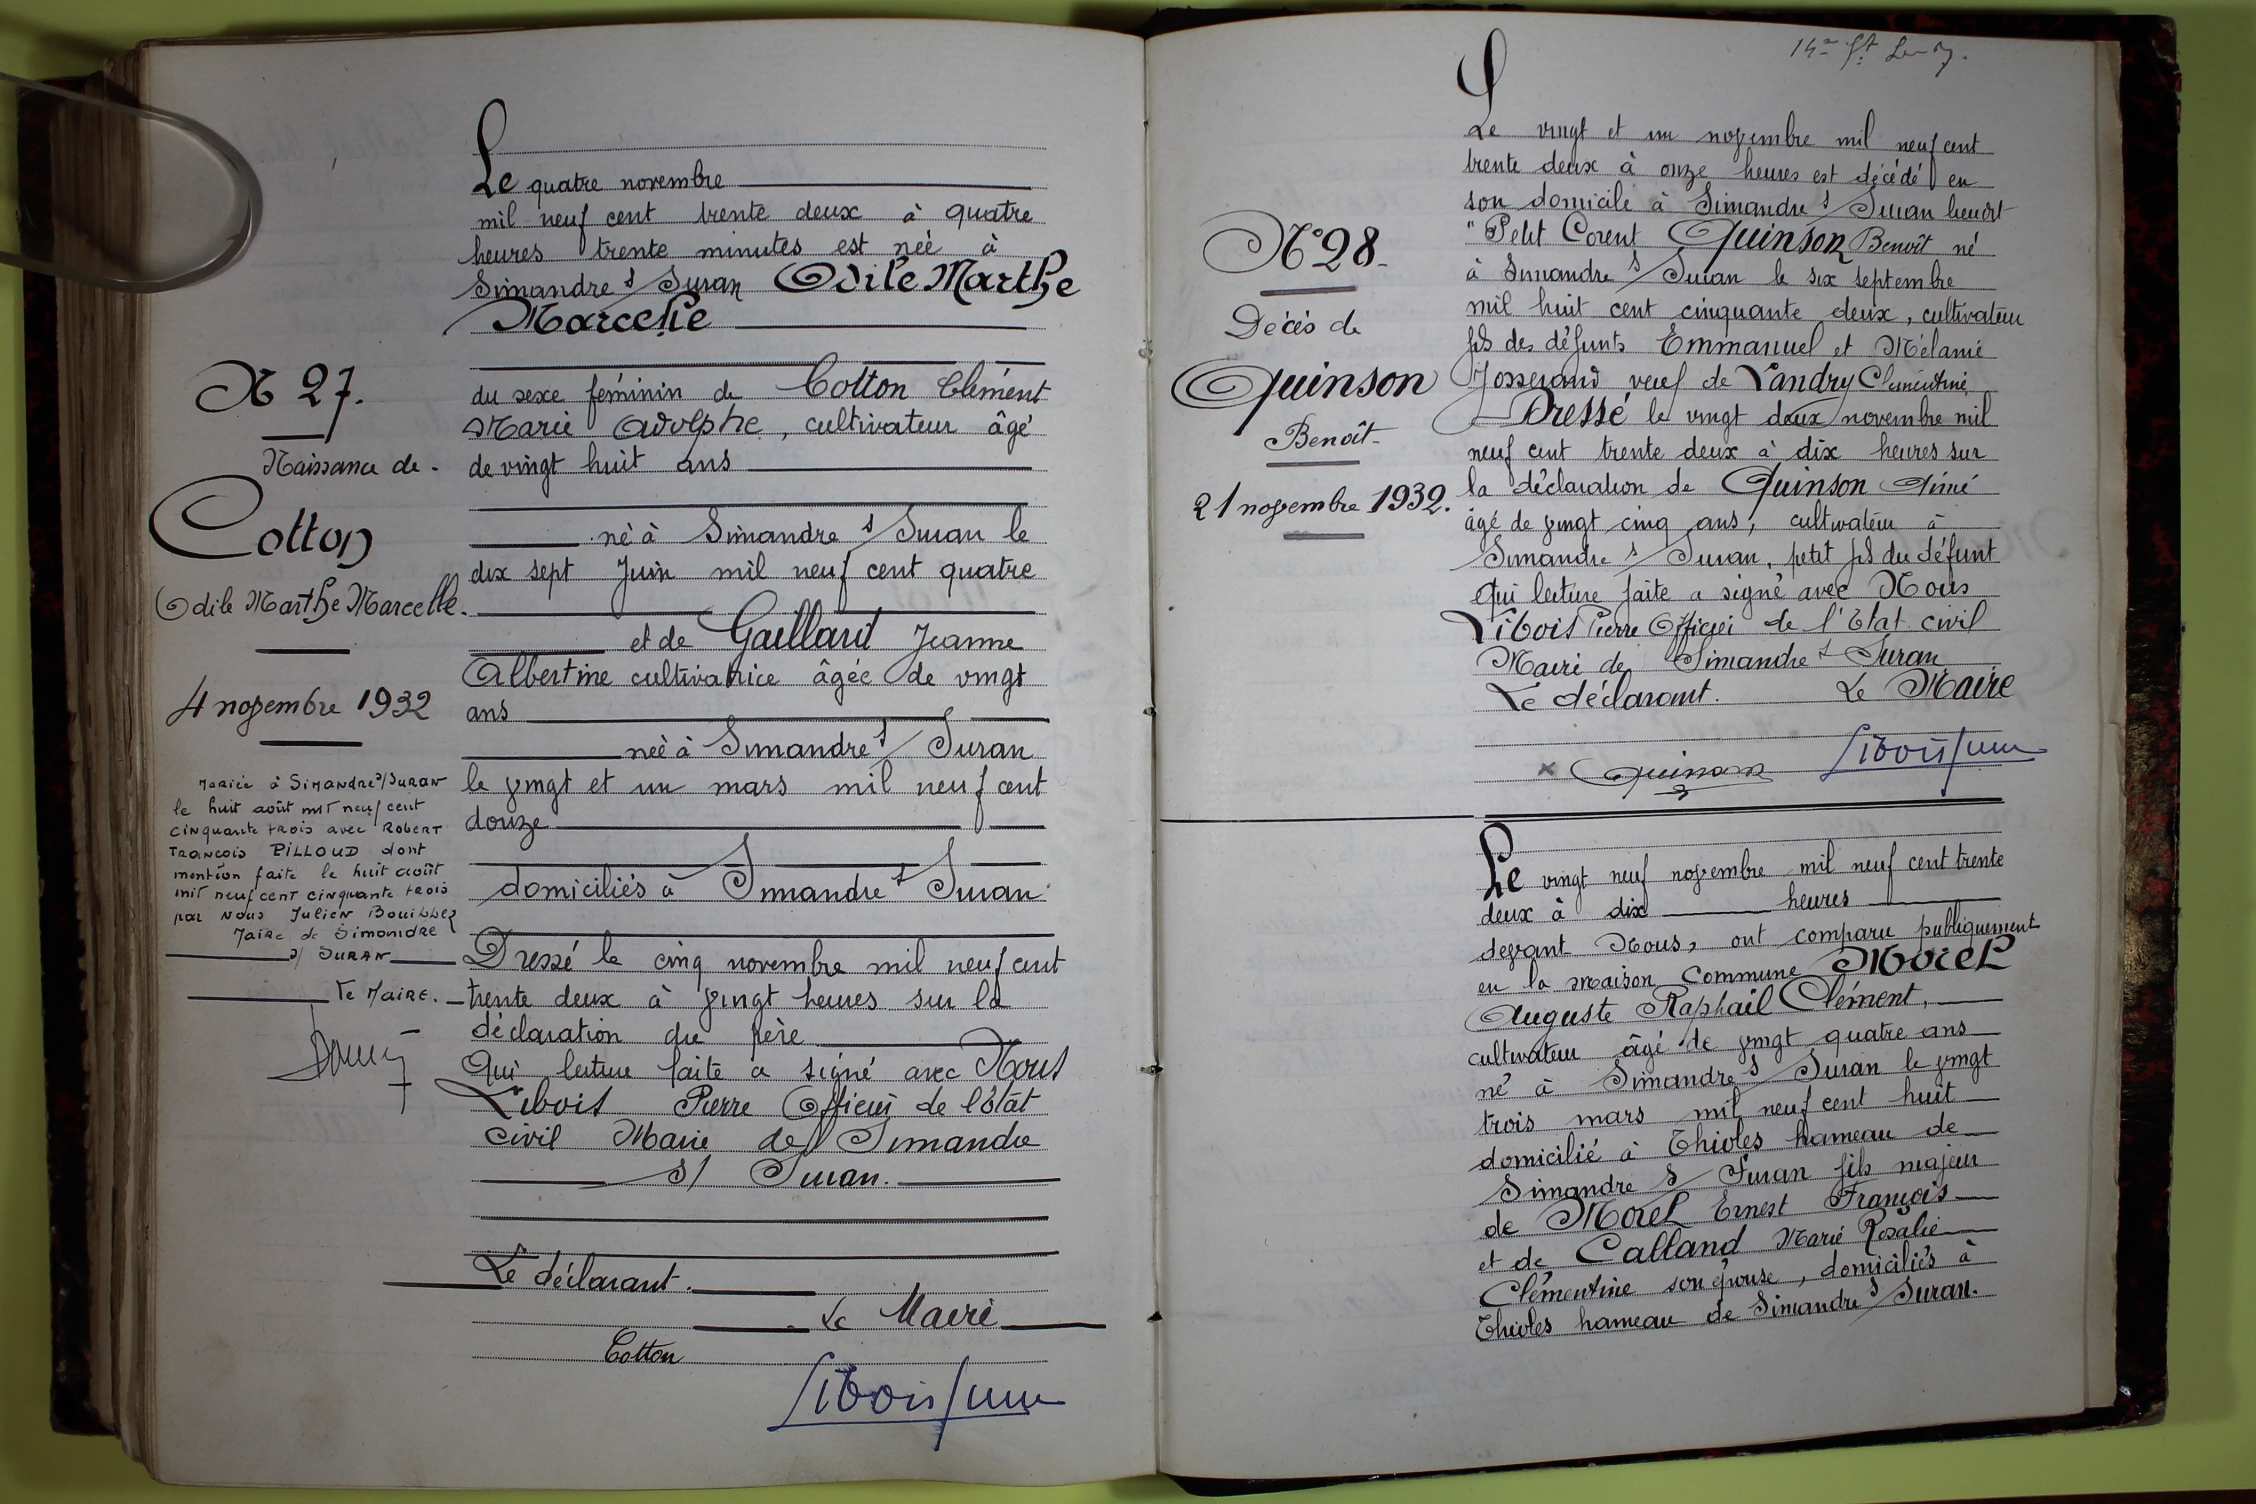 N 27.
Naissance de
Cotton
Odile Marthe Marcelle.
4 novembre 1932
Mariée à Simandre s/ Suran
le huit août mil neuf cent
cinquante trois avec Robert
François PILLOUD dont
mention faite le huit août
mil neuf cent cinquante trois
par Nous Julien
Maire de Simandre
s/ Suran
Le Maire.
Le quatre novembre
mil neuf cent trente deux à quatre
heures trente minutes est née à
Simandre s/ Suran Odile Marthe
Marcelle
du sexe féminin de Cotton Clément
Marie Adolphe, cultivateur âgé
de vingt huit ans
né à Simandre s/ Suran le
dix sept Juin mil neuf cent quatre
et de Gaillard Jeanne
Albertine cultivatrice âgée de vingt
ans
née à Simandre s/ Suran
le vingt et un mars mil neuf cent
douze
domiciliés à Simandre s/ Suran
Dressé le cinq novembre mil neuf cent
trente deux à vingt heures sur la
déclaration du père
Qui lecture faite a signé avec Nous
Libois Pierre Officier de l'état
civil Maire de Simandre
s/ Suran.
Le déclarant.
Le Maire
Cotton
Libois
N° 28
Décès de
Quinson
Benoît
21 novembre 1932.
Le vingt et un novembre mil neuf cent
trente deux à onze heures est décédé en
son domicile à Simandre s/ Suran
"Petit Corent Quinson Benoît né
à Simandre s/ Suran le six septembre
mil huit cent cinquante deux, cultivateur
fils des défunts Emmanuel et Mélanie
Josserand veuf de Landry Clémentine
Dressé le vingt deux novembre mil
neuf cent trente deux à dix heures sur
la déclaration de Quinson Aimé
âgé de vingt cinq ans, cultivateur à
Simandre s/ Suran, petit fils du défunt
Qui lecture faite a signé avec Nous
Libois Pierre Officier de l'Etat civil
Maire de Simandre s/ Suran
Le déclarant. Le Maire
Quinson Libois
Le vingt neuf novembre mil neuf cent trente
deux à dix heures
devant Nous, ont comparu publiquement
en la maison commune Morel
Auguste Raphaïl Clément,
cultivateur âgé de vingt quatre ans
né à Simandre s/ Suran le vingt
trois mars mil neuf cent huit
domicilié à Thioles hameau de
Simandre s/ Suran fils majeur
de Morel Ernest François
et de Calland Marie Rosalie
Clémentine son épouse, domiciliés à
Thioles hameau de Simandre s/ Suran.